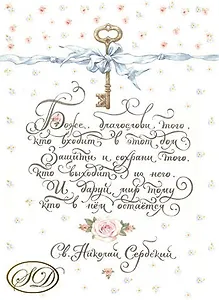 Боже, благослови того,
кто входит в этот дом
Защити и сохрани того,
кто выходит из него.
И даруй мир тому
кто в нём остаётся
Св. Николай Сербский